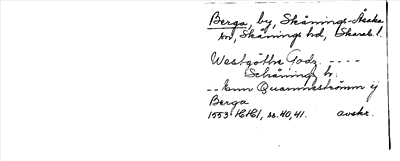 Berga, by, Skånings-Åsaka
sn, Skånings hd, Skarab. l.
Westgötha Godz. ----
Schånings h:
-- Enn Quarnneströmm ij
Berga
1553 HH1, ss. 40, 41. avskr.